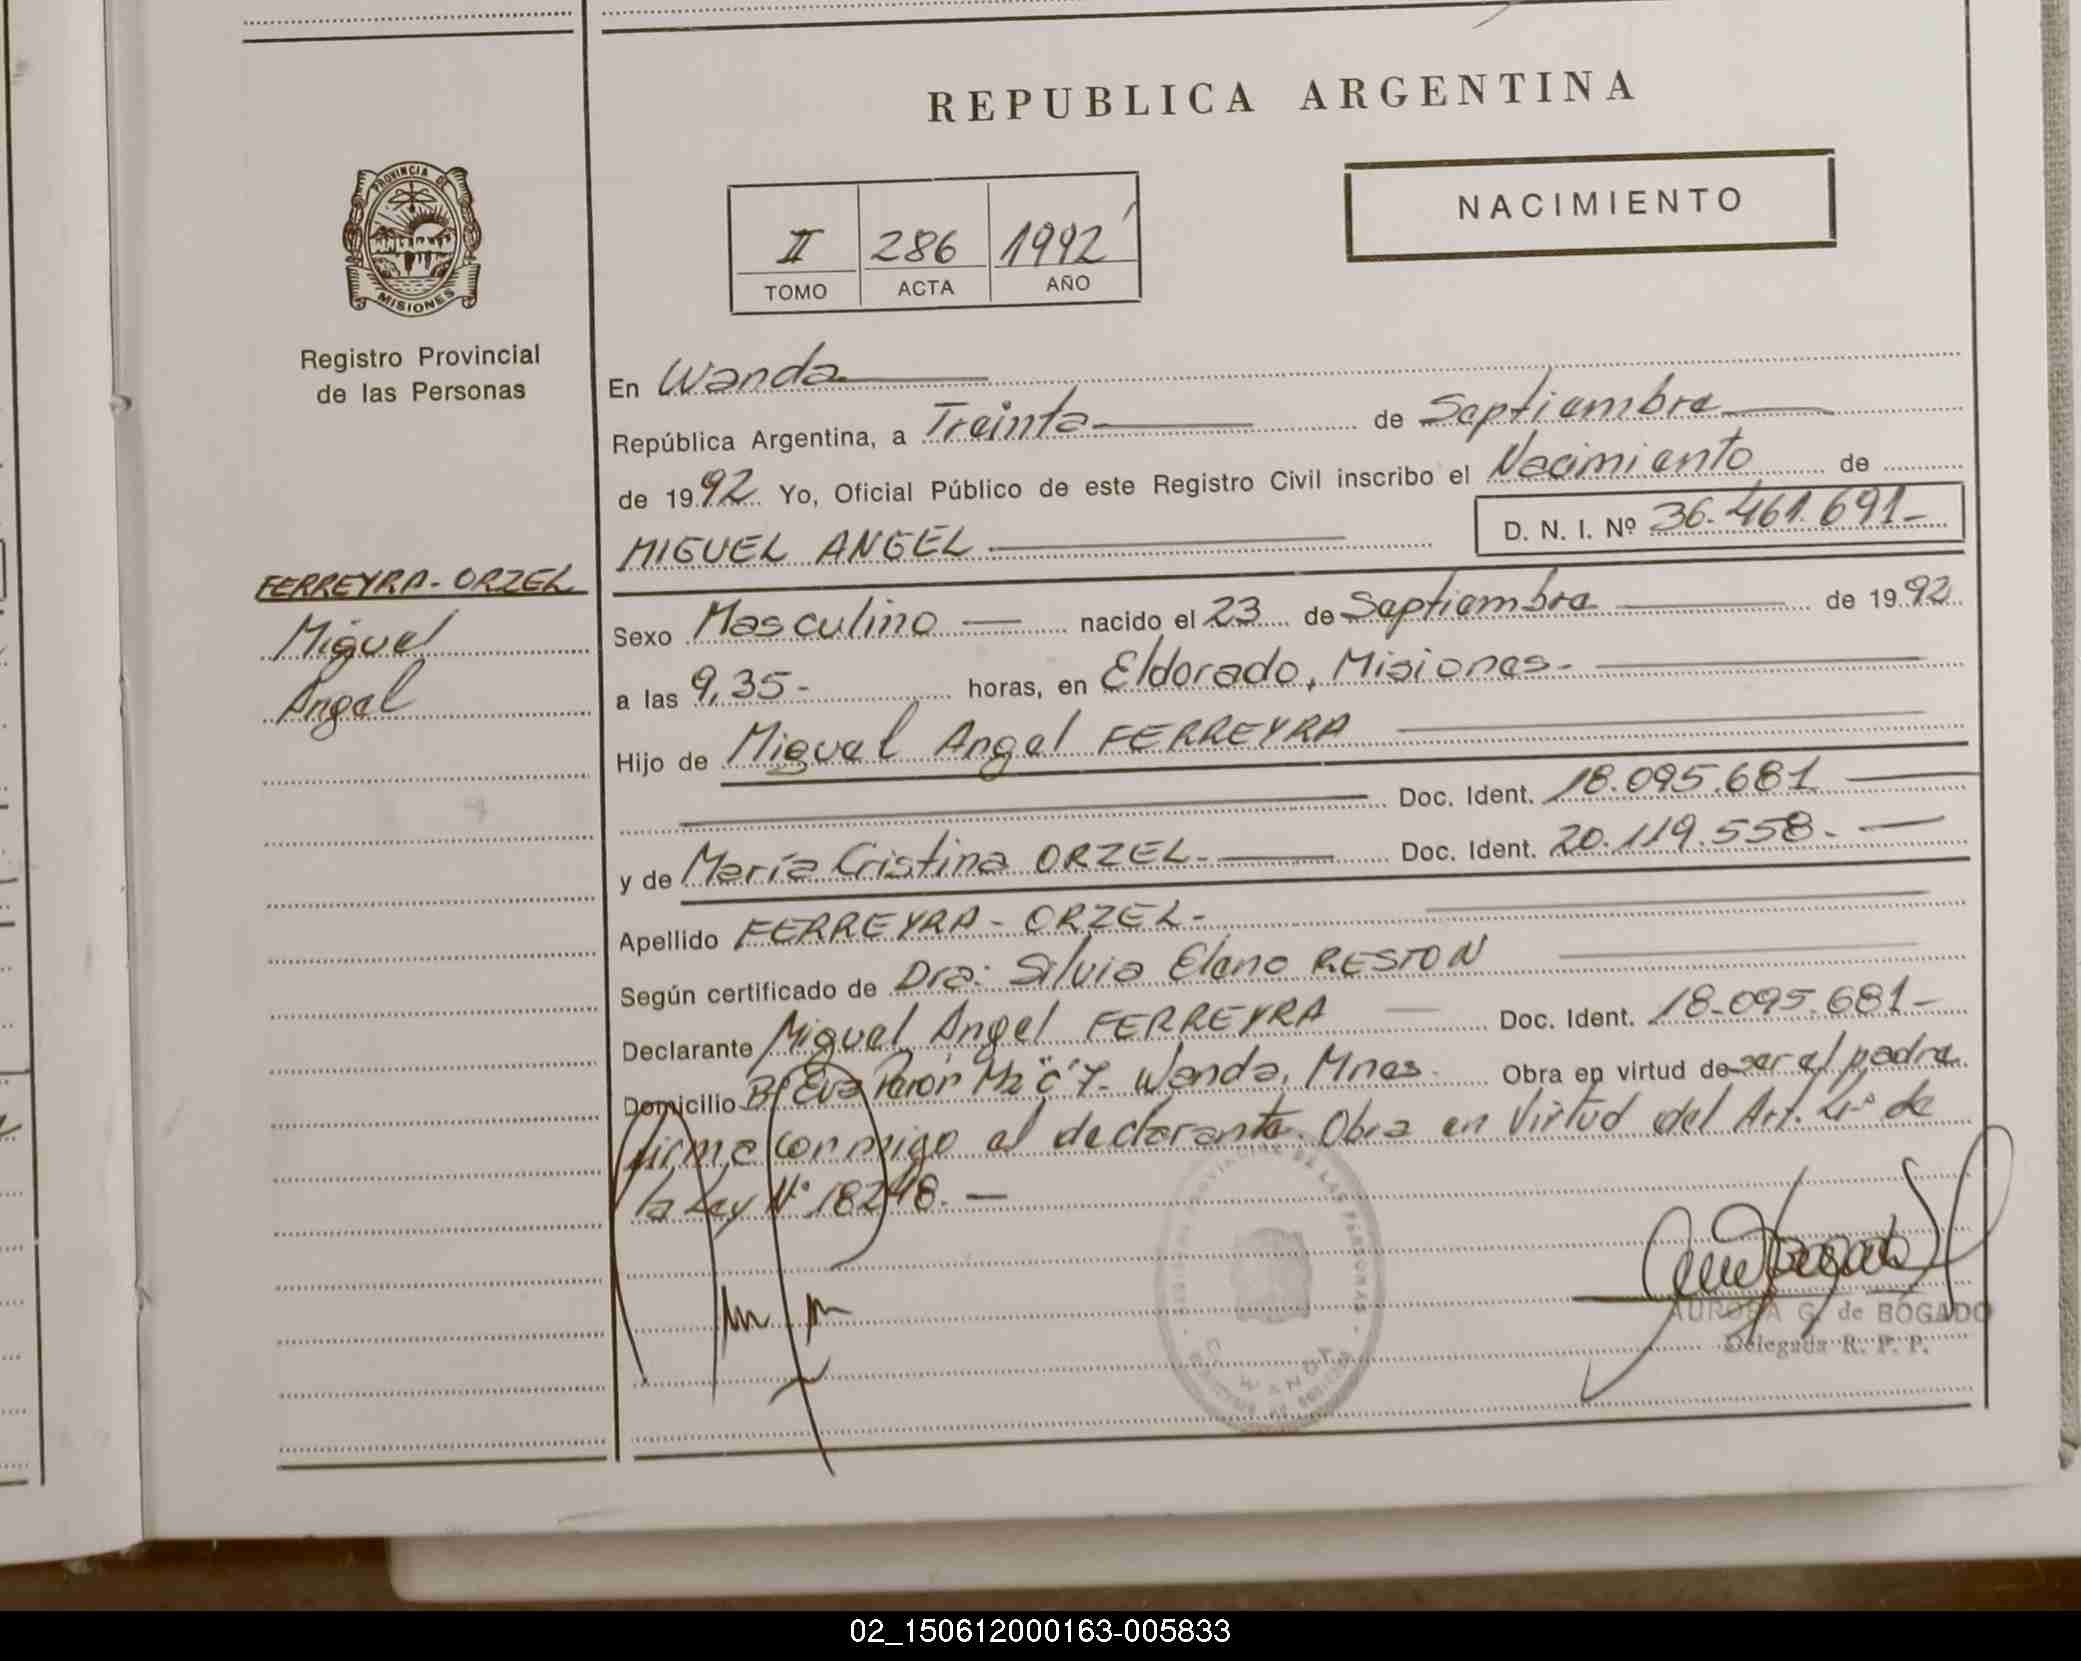 REPUBLICA ARGENTINA
NACIMIENTO
II 286 1992
TOMO ACTA AÑO
PROVINCIA DE
MISIONES
Registro Provincial
de las Personas
FERREYRA-ORZEL
Miguel
Angel
En Wanda
República Argentina, a Treinta de Septiembre
de 1992 Yo, Oficial Público de este Registro Civil inscribo el Nacimiento de
MIGUEL ANGEL D. N. I. Nº 36.461.691-
Sexo Masculino nacido el 23 de Septiembre de 1992
a las 9,35- horas, en Eldorado, Misiones.-
Hijo de Miguel Angel FERREYRA
Doc. Ident. 18.095.681
y de María Cristina ORZEL.- Doc. Ident. 20.119.558.-
Apellido FERREYRA - ORZEL-
Según certificado de Dra: Silvia Elena RESTON
Declarante Miguel Angel FERREYRA Doc. Ident. 18.095.681-
Domicilio Bº Eva Perón Mz "C" Wanda, Mnes. Obra en virtud de ser el padre.
firma conmigo el declarante. Obra en Virtud del Art. 4º de
la Ley Nº 18248.-
AURORA G. de BOGADO
Delegada R. P. P.
WANDA
02_150612000163-005833